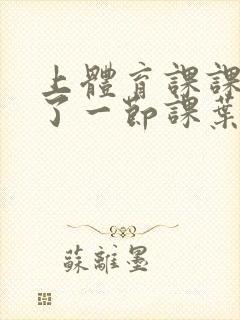 上體育課課
了一節課葉
蘇離墨